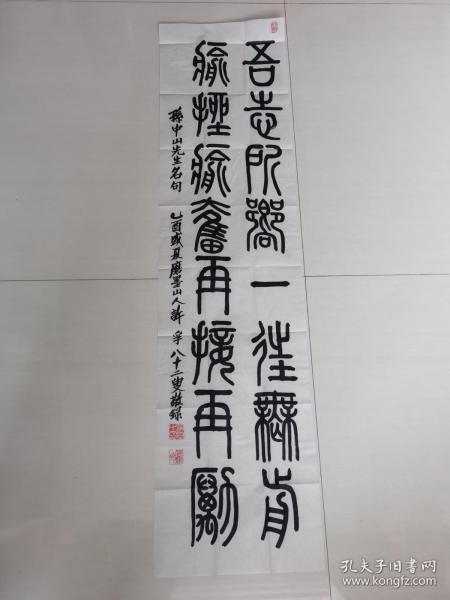 吾志所嚮一往無前
瘉挫瘉奮再接再勵
孫中山先生名句 乙酉盛夏磨墨山人許孚八十二叟敬録
孔夫子旧书网
www.kongfz.com